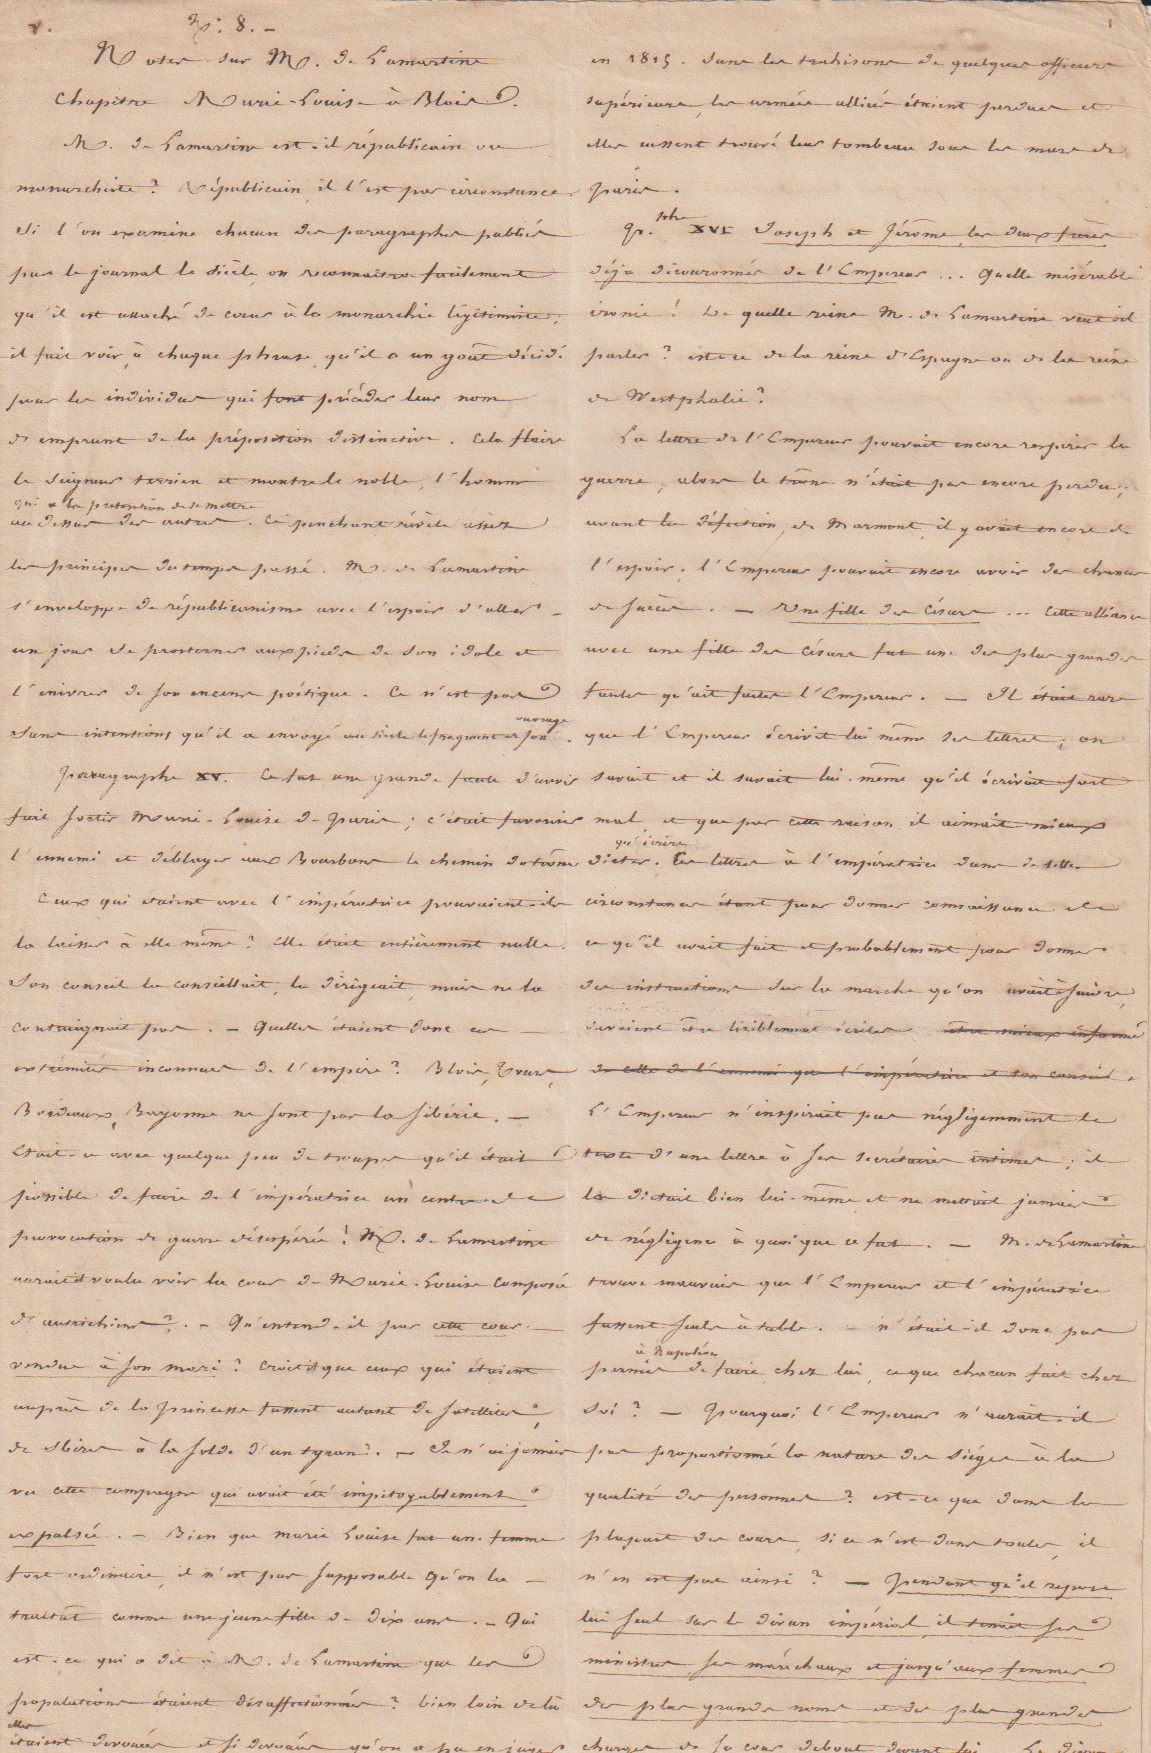 v. N.º 8. —
Notes sur M. de Lamartine
Chapitre Marie-Louise à Blois.
M. de Lamartine est-il républicain ou
monarchiste? Républicain, il l'est par circonstance.
Si l'on examine chacun des paragraphes publiés
par le journal le Siècle, on reconnaîtra facilement
qu'il est attaché de cœur à la monarchie légitimiste,
il fait voir, à chaque phrase, qu'il a un goût décidé
pour les individus qui font précéder leur nom
d'emprunt de la préposition distinctive. Cela flaire
le seigneur terrien et montre le noble, l'homme
qui a la prétention de se mettre
au dessus des autres. Ce penchant révèle assez
les principes du temps passé. M. de Lamartine
s'enveloppe de républicanisme avec l'espoir d'aller
un jour se prosterner aux pieds de son idole et
l'enivrer de son encens poétique. Ce n'est pas
ouvrage
sans intentions qu'il a envoyé au Siècle le fragment de son .
Paragraphe XV. Ce fut une grande faute d'avoir
fait sortir Marie-Louise de Paris; c'était favoriser
l'ennemi et déblayer aux Bourbons le chemin du trône
Ceux qui étaient avec l'impératrice pouvaient-ils
la laisser à elle même? Elle était entièrement nulle.
Son conseil la conseillait, la dirigeait, mais ne la
contraignait pas. — Quelles étaient donc ces —
extrémités inconnues de l'empire? Blois, Tours,
Bordeaux, Bayonne ne sont pas la Sibérie. —
Etait-ce avec quelque peu de troupes qu'il était
possible de faire de l'impératrice un centre de
provocation de guerre désespérée! M. de Lamartine
aurait-il voulu voir la cour de Marie-Louise composée
d'autrichiens?. — Qu'entend-il par cette cour —
vendue à son mari? Croit-il que ceux qui étaient
auprès de la Princesse fussent autant de satellites,
de sbires à la solde d'un tyran?. — Je n'ai jamais
vu cette compagne qui avait été impitoyablement
expulsée. — Bien que Marie Louise fut une femme
fort ordinaire, il n'est pas supposable qu'on la —
traitât comme une jeune fille de dix ans. — Qui
est-ce qui a dit à M. de Lamartine que les
populations étaient désaffectionnées? bien loin de là
elles
étaient dévouées et si dévouées qu'on a pu en juger
1
en 1815. Sans les trahisons de quelques officiers
supérieurs, les armées alliées étaient perdues et
elles eussent trouvé leur tombeau sous les murs de
Paris.
Gr.phe XVI Joseph et Jérôme, les deux frères
déjà découronnés de l'Empereur ... Quelle misérable
ironie! De quelle reine M. de Lamartine veut-il
parler? est-ce de la reine d'Espagne ou de la reine
de Westphalie?
La lettre de l'Empereur pouvait encore respirer la
guerre, alors le trône n'était pas encore perdu;
avant la défection, de Marmont, il y avait encore de
l'espoir; l'Empereur pouvait encore avoir des chances
de succès. — Une fille des Césars ... Cette alliance
avec une fille des Césars fut une des plus grandes
fautes qu'ait faites l'Empereur. — Il était rare
que l'Empereur écrivit lui même ses lettres; on
savait et il savait lui-même qu'il écrivait fort
mal et que par cette raison il aimait mieux
qu'écrire
dicter. Les lettres à l'impératrice dans de telles
circonstances étant pour donner connaissance de
ce qu'il avait fait et probablement pour donner
des instructions sur la marche qu'on avait à suivre,
devaient être lisiblement écrites être mieux informé
de celle de l'ennemi que l'impératrice et son conseil.
L'Empereur n'inspirait pas négligemment le
texte d'une lettre à ses secrétaires intimes; il
la dictait bien lui-même et ne mettait jamais
de négligence à quoique ce fut. — M. de Lamartine
trouve mauvais que l'Empereur et l'impératrice
fussent seuls à table. — n'était-il donc pas
à Napoléon
permis de faire, chez lui, ce que chacun fait chez
soi? — Pourquoi l'Empereur n'aurait-il
pas proportionné la nature des sièges à la
qualité des personnes? est-ce que dans la
plupart des cours, si ce n'est dans toutes, il
n'en est pas ainsi? — Pendant qu'il repose
lui seul sur le divan impérial, il tenait ses
ministres ses maréchaux et jusqu'aux femmes
des plus grands noms et des plus grandes
charges de sa cour debout devant lui. Le divan